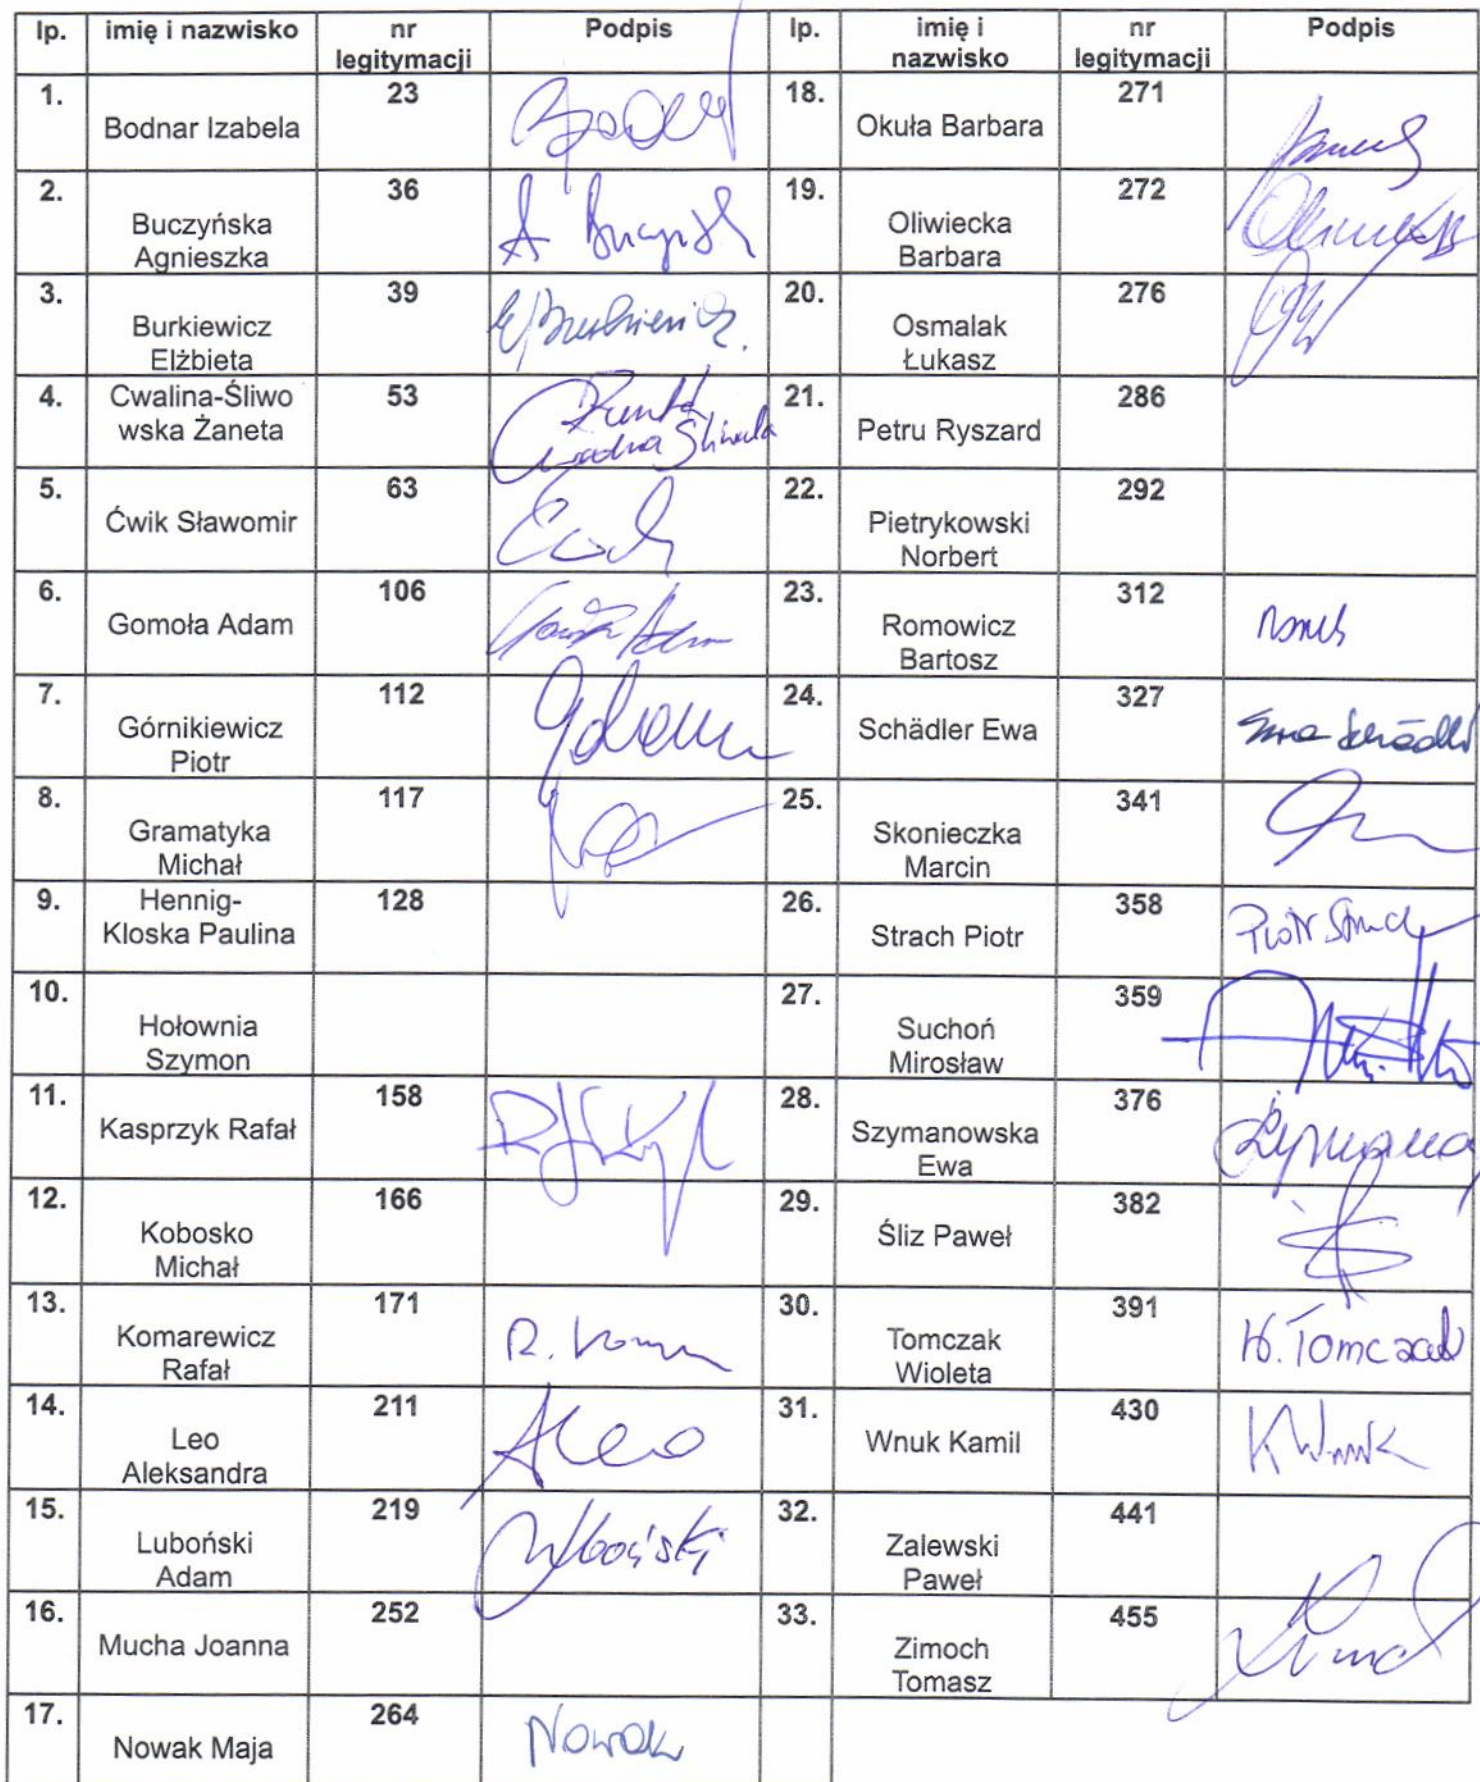 lp. imię i nazwisko nr legitymacji Podpis lp. imię i nazwisko nr legitymacji Podpis
1. Bodnar Izabela 23 18. Okuła Barbara 271
2. Buczyńska Agnieszka 36 19. Oliwiecka Barbara 272
3. Burkiewicz Elżbieta 39 20. Osmalak Łukasz 276
4. Cwalina-Śliwo wska Żaneta 53 21. Petru Ryszard 286
5. Ćwik Sławomir 63 22. Pietrykowski Norbert 292
6. Gomoła Adam 106 23. Romowicz Bartosz 312
7. Górnikiewicz Piotr 112 24. Schädler Ewa 327 Ewa Schädler
8. Gramatyka Michał 117 25. Skonieczka Marcin 341
9. Hennig-Kloska Paulina 128 26. Strach Piotr 358 Piotr Strach
10. Hołownia Szymon 27. Suchoń Mirosław 359
11. Kasprzyk Rafał 158 28. Szymanowska Ewa 376
12. Kobosko Michał 166 29. Śliz Paweł 382
13. Komarewicz Rafał 171 30. Tomczak Wioleta 391 W. Tomczak
14. Leo Aleksandra 211 ALeo 31. Wnuk Kamil 430 KWnuk
15. Luboński Adam 219 32. Zalewski Paweł 441
16. Mucha Joanna 252 33. Zimoch Tomasz 455
17. Nowak Maja 264 Nowak